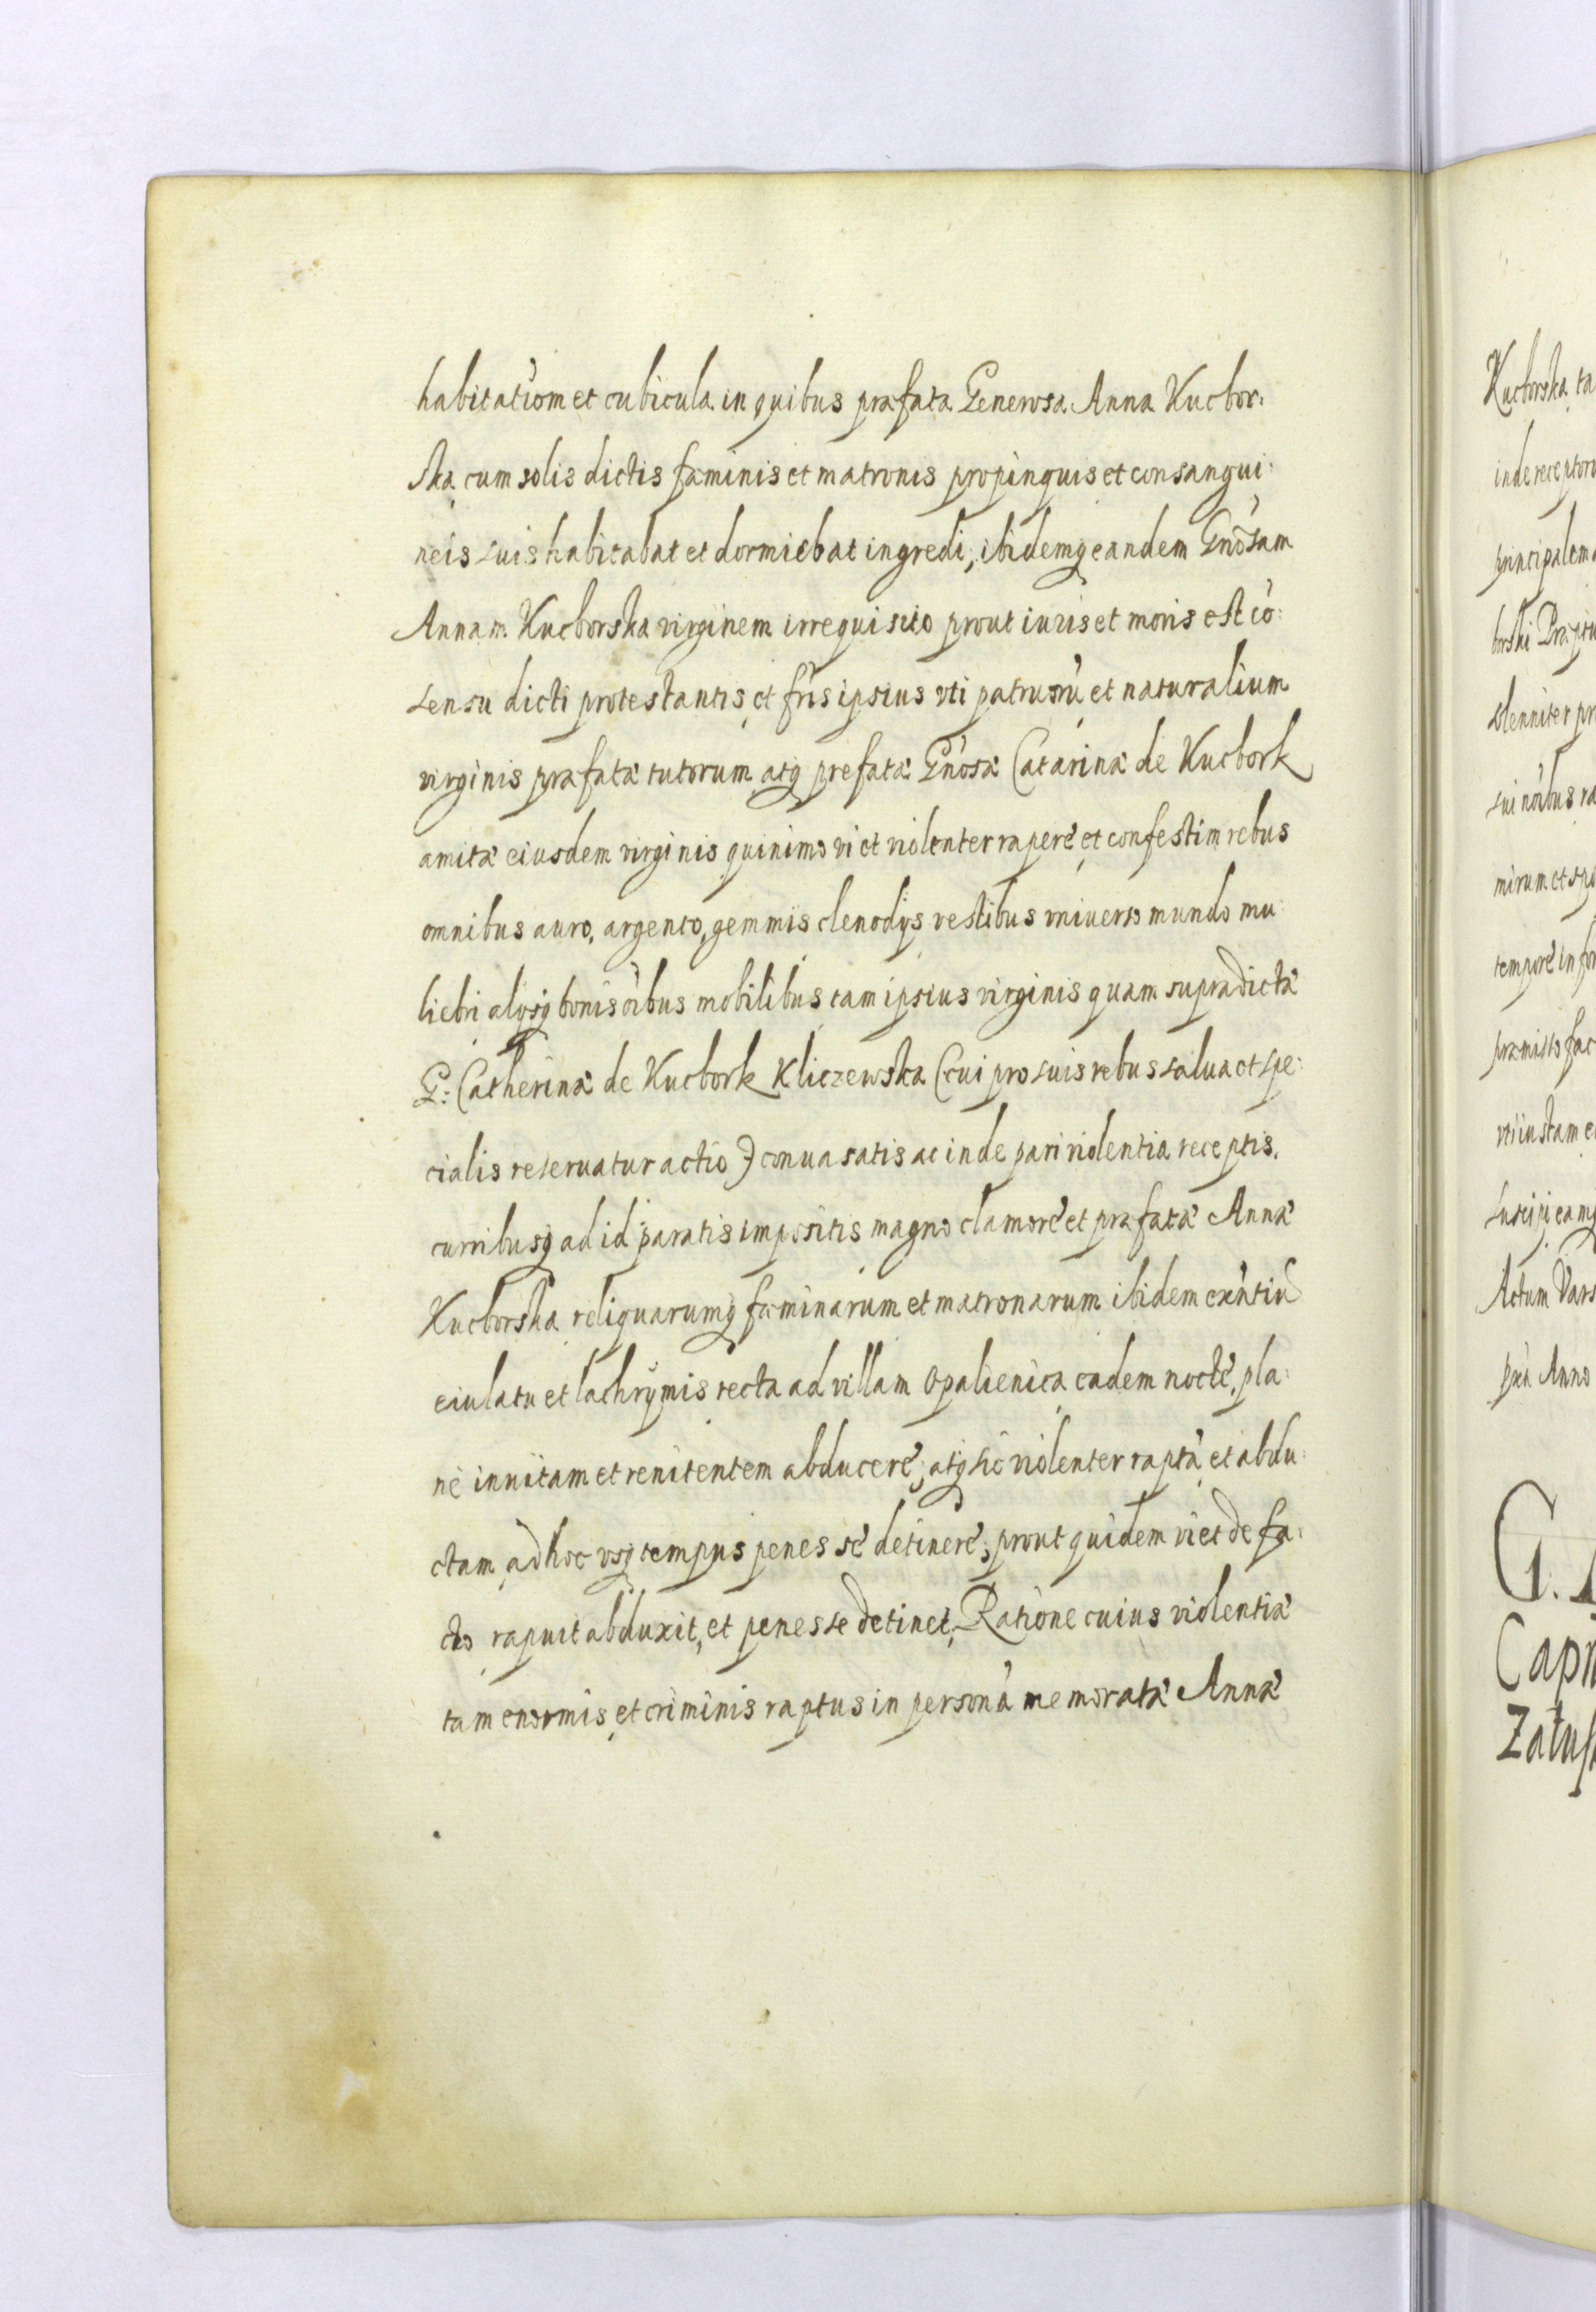 habitatiom et cubicula in quibus præfata Generosa Anna Kucbor:
ska cum solis dictis fæminis et matronis propinquis et consangui:
neis suis habitabat et dormiebat ingredi, ibidemq eandem Gnosam
Annam Kucborska virginem irrequisito prout iuris et moris est cò:
sensu dicti protestantis et fris ipsius vti patruorù et naturalium
virginis præfatæ tutorum atq prefatæ Gnosæ Catarinæ de Kucbork
amitæ eiusdem virginis quinimo vi et violenter rapere et confestim rebus
omnibus auro, argento, gemmis clenodÿs vestibus vniuerso mundo mu:
liebri alÿsq bonis oibus mobilibus tam ipsius virginis quam supradictæ
G: Catherinæ de Kucbork Kliczewska (cui pro suis rebus salua et spe:
cialis reseruatur actio) conuasatis ac inde pari violentia receptis,
curribusq ad id paratis impositis magno clamore et præfatæ Annæ
Kucborska reliquarumq fæminarum et matronarum ibidem exntiù
eiulatu et lachrÿmis recta ad villam Opalienica eadem nocte, pla:
ne inuitam et renitentem abducere, atq sic violenter raptà et abdu:
ctam ad hoc vsq tempus penes se detinere, prout quidem vi et de fa:
cto rapuit abduxit, et penes se detinet, Ratione cuius violentiæ
tam enormis et criminis raptus in personà memoratæ Annæ
Kucborska ta
inde receptor
principalem
borski Præpo
solenniter pr
sui noibus ra
mirum et spo
tempore in for
præmisso fac
vti iustam e
suscipi eamq
Actum Vars
pna Anno
G.
Capi
Załus